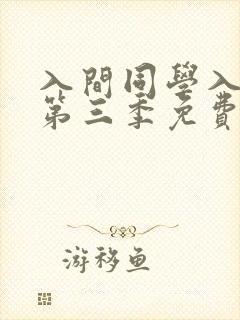 入間同學入
第三季免費
游移鱼